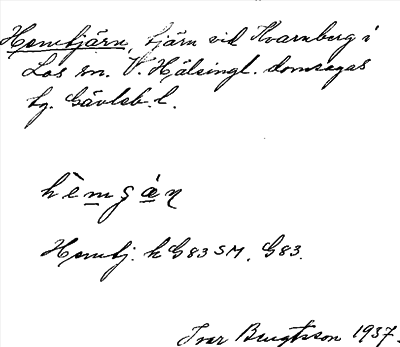 Hemtjärn, tjärn vid Kvarnberg i
Los sn. V. Hälsingl. domsagas
tg. Gävleb. l.
hèmʂän
Hemtj. k G83 SM, G83.
Ivar Bengtsson 1937.